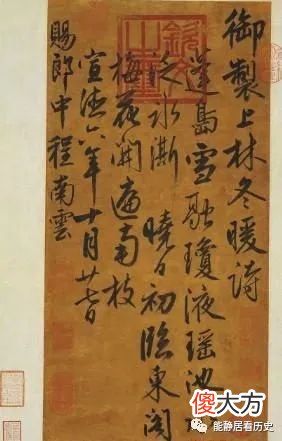 御製上林冬暖詩
蓬島雪融瓊液瑶池水
泛冰澌 曉日初臨東閣
梅花開遍南枝
宣德六年十月廿七日
賜郎中程南雲
傻大方
能静居看历史